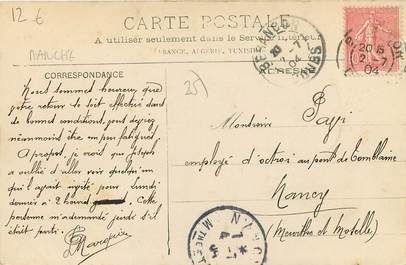 12 €
MANCHE
CARTE POSTALE
A utiliser seulement dans le Service intérieur
FRANCE, ALGÉRIE, TUNISIE
CORRESPONDANCE
ADRESSE
25)
Nous sommes heureux, que
votre retour se soit effectué dans
de bonnes conditions, vous devez
néanmoins être un peu fatigués
A propos, je crois que
a oublié d'aller voir quelqu'un
qui l'avait invité pour lundi
dernier à 2 heures. Cette
personne m'a demandé jeudi s'il
était parti.
Monsieur
employé d'octroi au pont de Tomblaine
Nancy
(Meurthe et Moselle)
04
20
2 - 7
04
NANCY